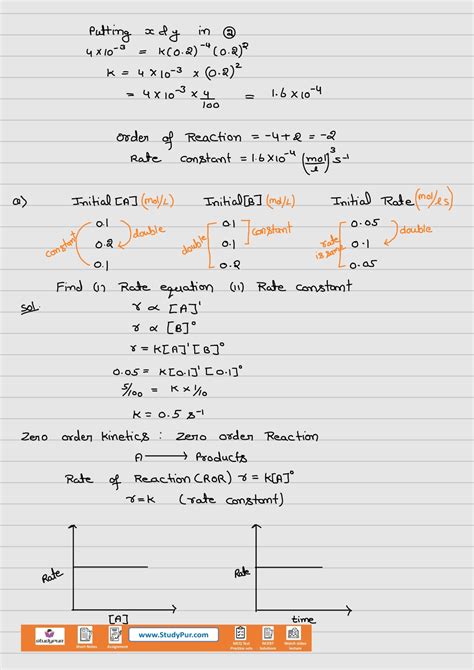 Putting x dy in ②
4×10⁻³ = K(0.2)⁻⁴(0.2)²
K = 4×10⁻³ × (0.2)²
= 4×10⁻³ × 4/100 = 1.6×10⁻⁴
Order of Reaction = -4+2 = -2
Rate constant = 1.6×10⁻⁴ (mol/l)³ s⁻¹
Q) Initial [A] (mol/L) Initial [B] (mol/L) Initial Rate (mol/ls)
0.1 0.1 0.05
constant 0.2 double double 0.1 constant rate is same 0.1 double
0.1 0.2 0.05
Find (i) Rate equation (ii) Rate constant
Sol. r ∝ [A]¹
r ∝ [B]⁰
r = K[A]¹[B]⁰
0.05 = K[0.1]¹[0.1]⁰
5/100 = K × 1/10
K = 0.5 s⁻¹
Zero order kinetics : Zero order Reaction
A ⟶ Products
Rate of Reaction (ROR) r = K[A]⁰
r = K (rate constant)
Rate Rate
[A] time
studypur Short Notes Assignment www.StudyPur.com MCQ Test Practice sets NCERT Solutions Watch video lecture